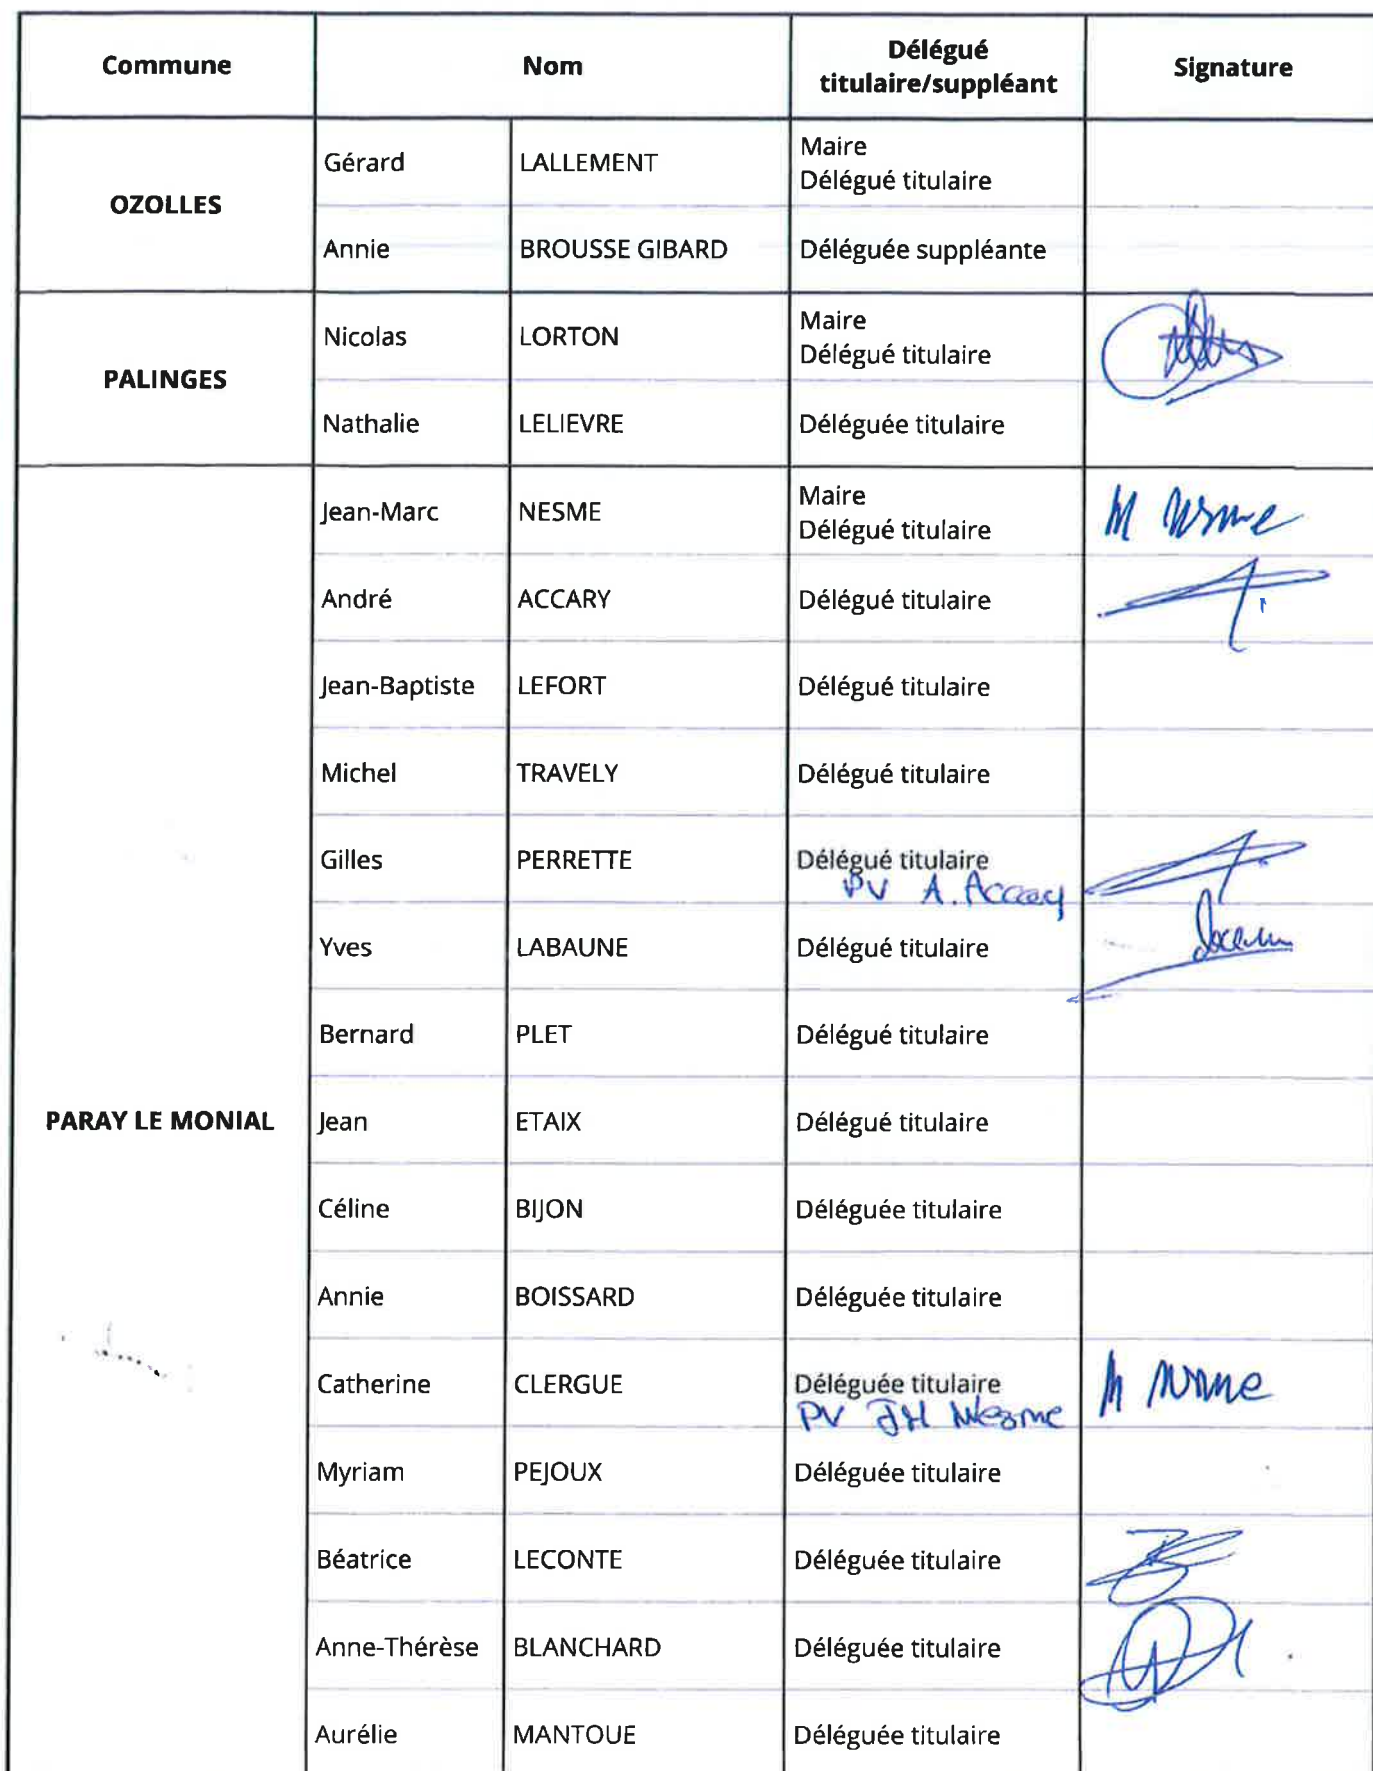 Commune Nom Délégué titulaire/suppléant Signature
OZOLLES
Gérard LALLEMENT Maire Délégué titulaire
Annie BROUSSE GIBARD Déléguée suppléante
PALINGES
Nicolas LORTON Maire Délégué titulaire
Nathalie LELIEVRE Déléguée titulaire
PARAY LE MONIAL
Jean-Marc NESME Maire Délégué titulaire
André ACCARY Délégué titulaire
Jean-Baptiste LEFORT Délégué titulaire
Michel TRAVELY Délégué titulaire
Gilles PERRETTE Délégué titulaire
PV A. Accary
Yves LABAUNE Délégué titulaire
Bernard PLET Délégué titulaire
Jean ETAIX Délégué titulaire
Céline BIJON Déléguée titulaire
Annie BOISSARD Déléguée titulaire
Catherine CLERGUE Déléguée titulaire
PV JM Nesme
Myriam PEJOUX Déléguée titulaire
Béatrice LECONTE Déléguée titulaire
Anne-Thérèse BLANCHARD Déléguée titulaire
Aurélie MANTOUE Déléguée titulaire